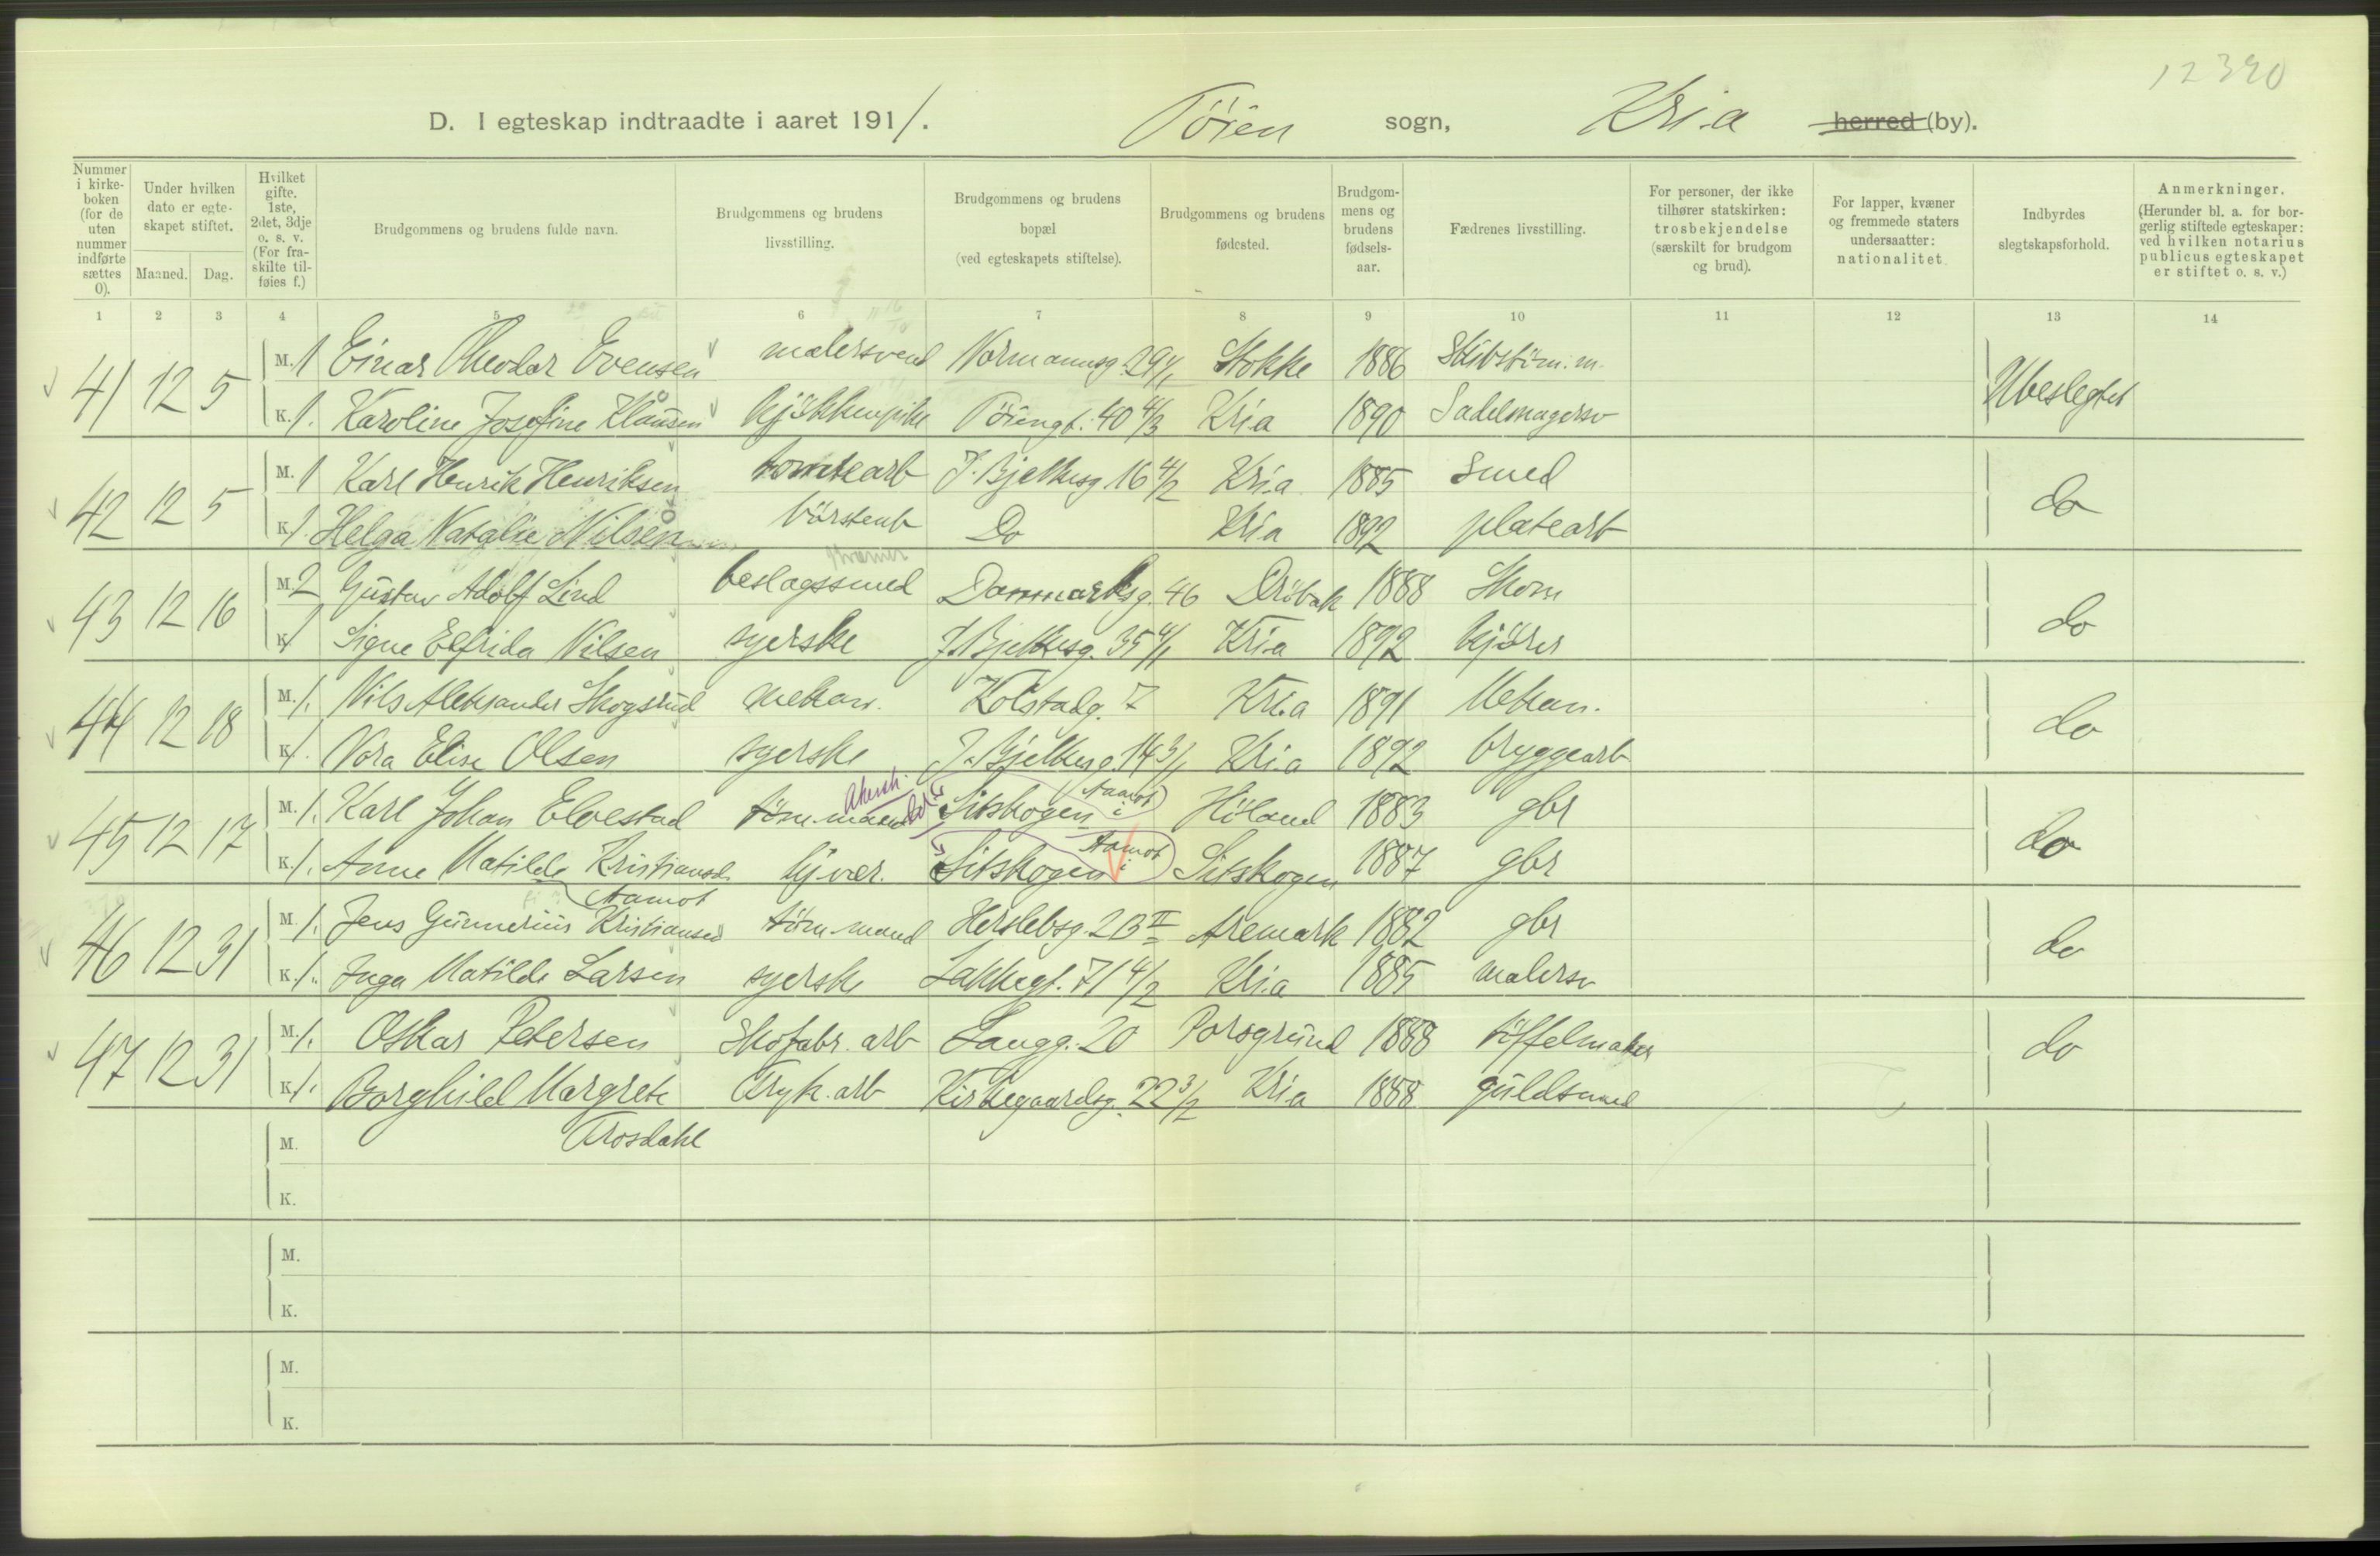 12390
D. I egteskap indtraadte i aaret 1911. Töien sogn, Kria herred (by).
Nummer i kirke-boken (for de uten nummer indførte sættes 0).
Under hvilken dato er egte-skapet stiftet.
Maaned. Dag.
Hvilket gifte. 1ste, 2det, 3dje o. s. v. (For fra-skilte til-føies f.)
Brudgommens og brudens fulde navn.
Brudgommens og brudens livsstilling.
Brudgommens og brudens bopæl (ved egteskapets stiftelse).
Brudgommens og brudens fødested.
Brudgom-mens og brudens fødsels-aar.
Fædrenes livsstilling.
For personer, der ikke tilhører statskirken: trosbekjendelse (særskilt for brudgom og brud).
For lapper, kvæner og fremmede staters undersaatter: nationalitet.
Indbyrdes slegtskapsforhold.
Anmerkninger. (Herunder bl. a. for bor-gerlig stiftede egteskaper: ved hvilken notarius publicus egteskapet er stiftet o. s. v.)
1 2 3 4 5 6 7 8 9 10 11 12 13 14
41 12 5 M. 1 Einar Theodor Evensen malersvend Normannsg. 29 4/1 Stokke 1886 Skibstöm.m. Ubeslegtet
K. 1. Karoline Josefine Klausen kjökkenpike Töiengt. 40 4/3 Kria 1890 Sadelmagersv
42 12 5 M. 1 Karl Henrik Henriksen tomtearb J. Bjelkesg 16 4/2 Kria 1885 Smed do
K. 1. Helga Natalie Nilsen börstearb Do Kria 1892 platearb
43 12 16 M. 2 Gustav Adolf Lind beslagssmed Danmarksg. 46 Dröbak 1888 Skom do
K. 1 Signe Elfrida Nilsen syerske J. Bjelkesg. 35 4/1 Kria 1892 kjörer
44 12 18 M. 1. Nils Aleksander Skogsrud mekan. Kolstadg. 7 Kria 1891 Mekan. do
K. 1. Nora Elise Olsen syerske J. Bjelkesg. 14 3/1 Kria 1892 bryggearb
Akersh.
45 12 17 M. 1. Karl Johan Elvestad töm.mand Sitskogen i Aamot Höland 1883 gbr do
K. 1. Anne Matilde Kristiansd. hjvær. Sitskogen i Aamot Sitskogen 1887 gbr
Aamot
46 12 31 M. 1. Jens Gunnerius Kristiansen töm.mand Herslebsg. 2B II Aremark 1882 gbr do
K. 1. Inga Matilde Larsen syerske Lakkegt. 71 4/2 Kria 1885 malersv
47 12 31 M. 1. Oskar Petersen Skofabr. arb Langg. 20 Porsgrund 1888 töffelmaker do
K. 1. Borghild Margrete Tryk. arb Kirkegaardsg. 22 3/2 Kria 1888 guldsmed
Trosdahl
M.
K.
M.
K.
M.
K.